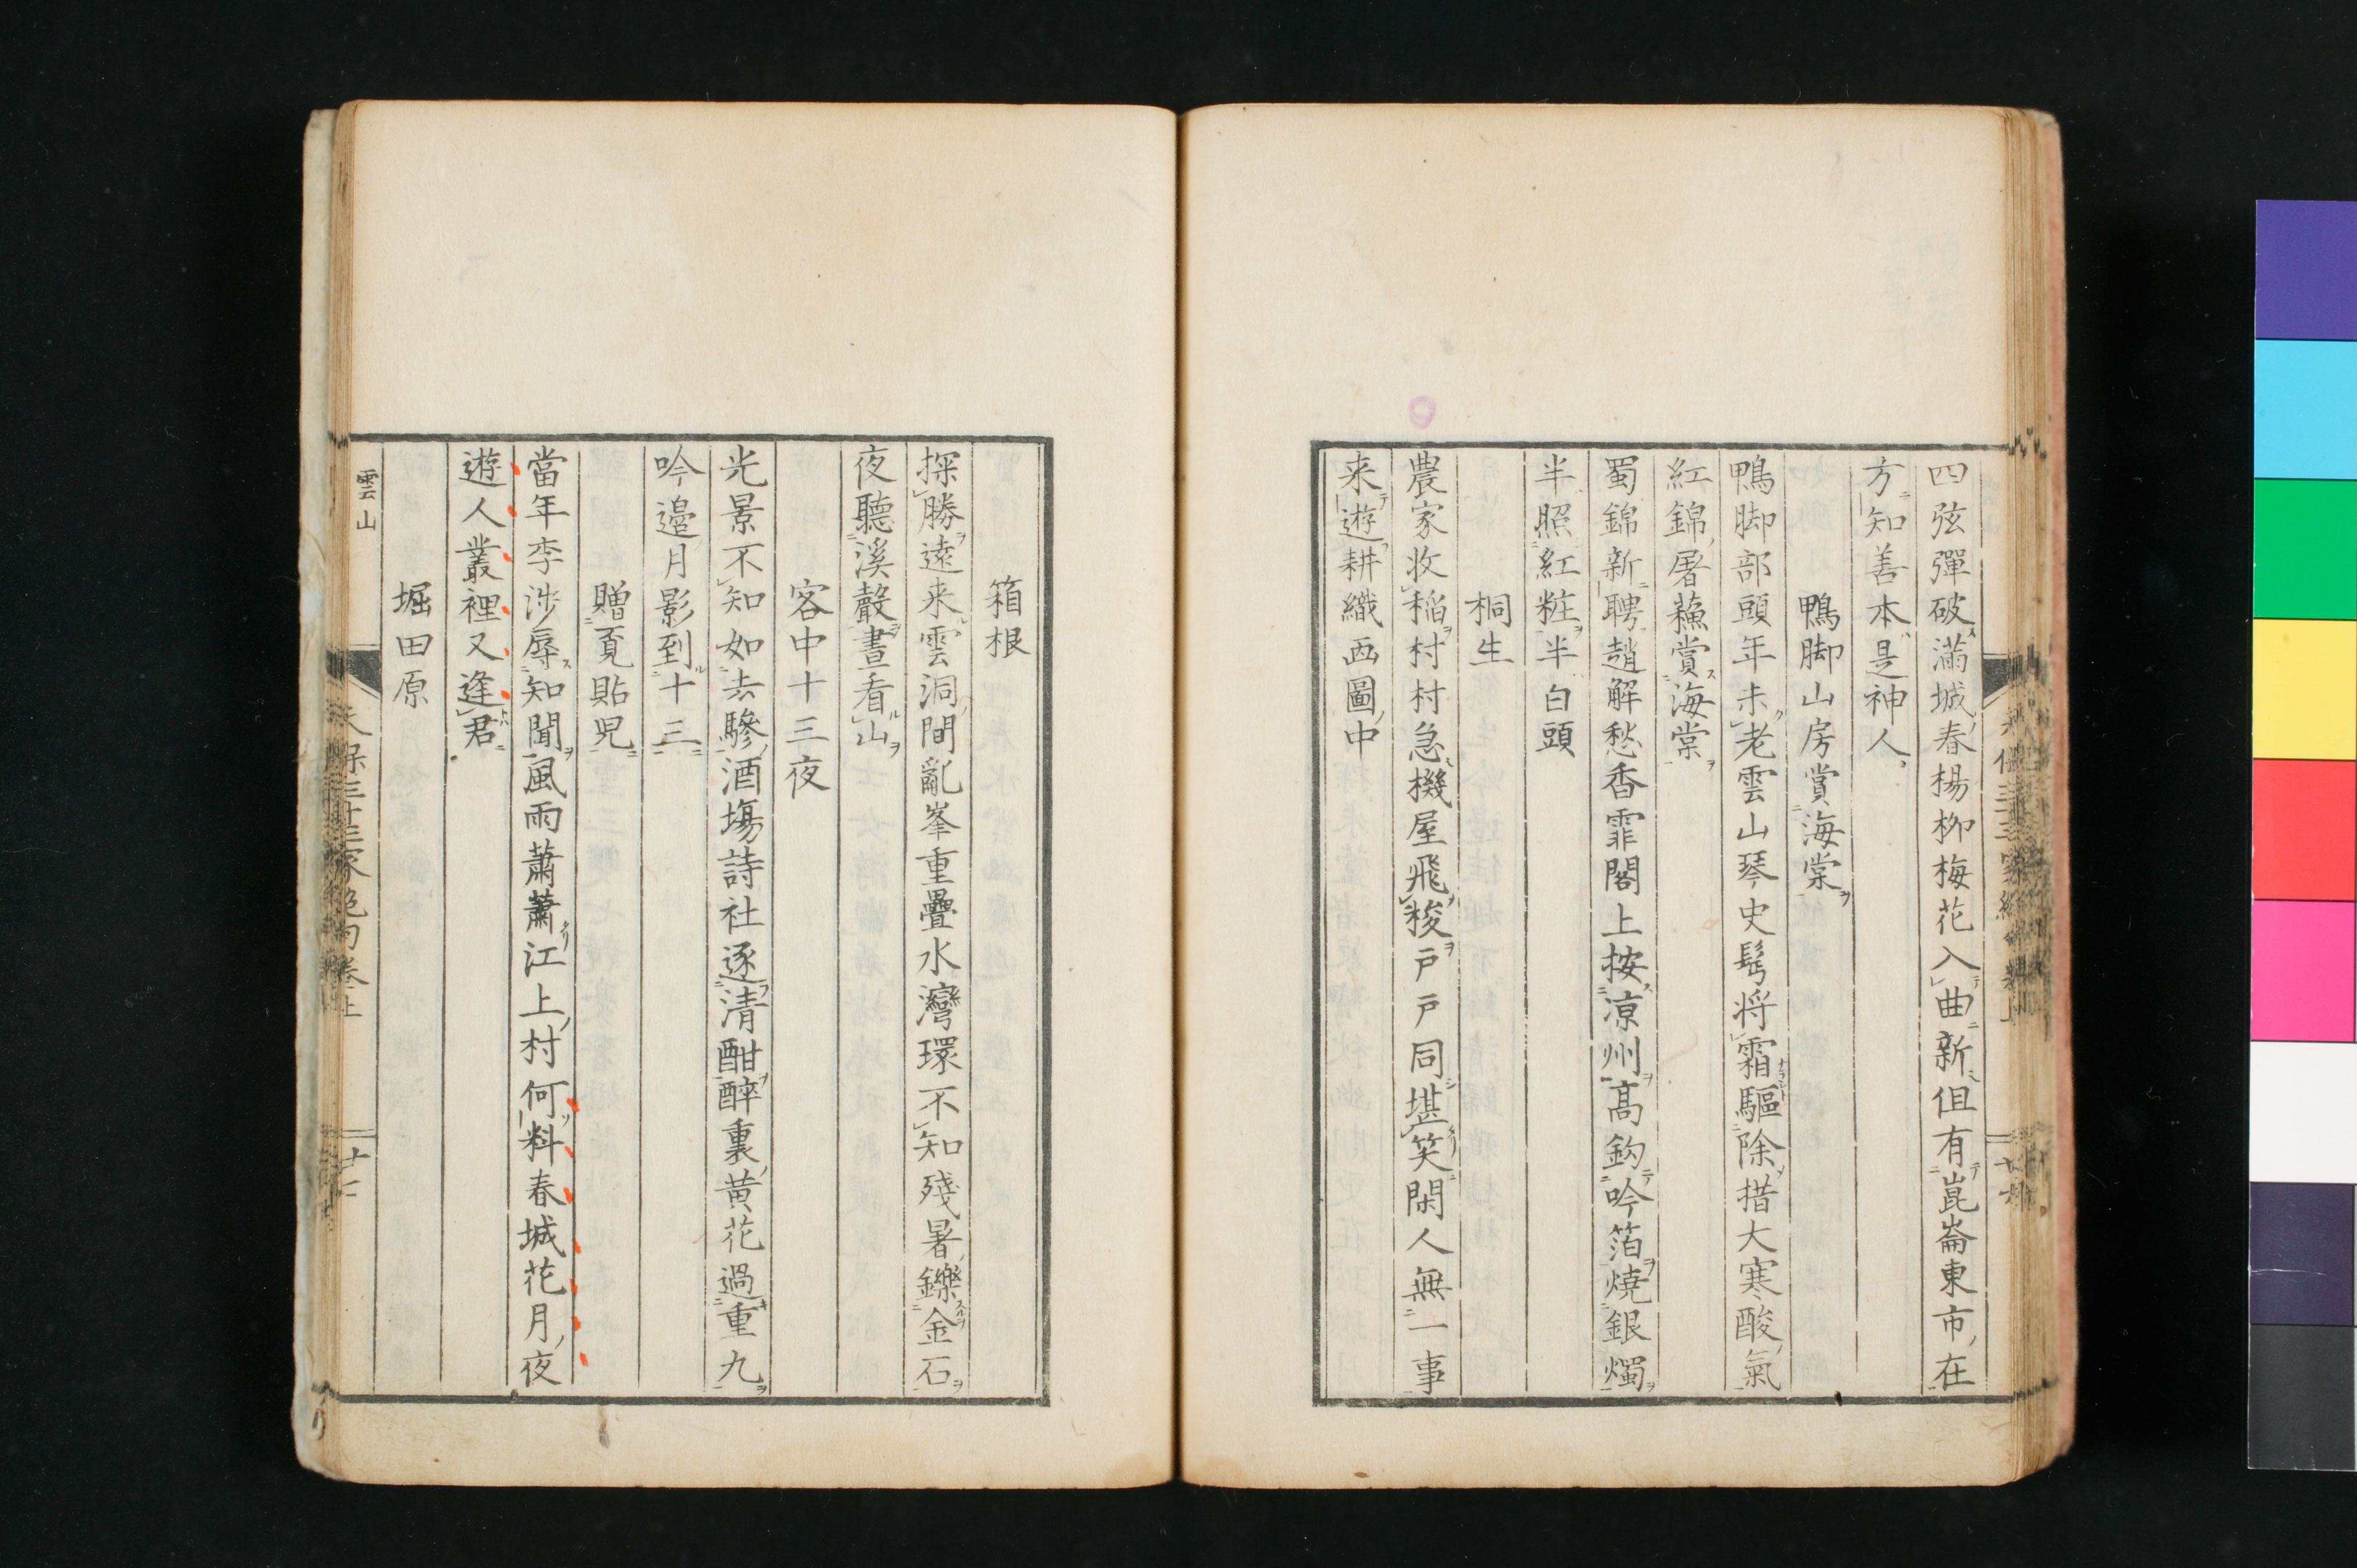 四弦彈破滿城春楊柳梅花入曲新但有崑崙東市在
方知善本是神人
鴨脚山房賞海棠
鴨脚部頭年未老雲山琴史髩将霜驅除措大寒酸氣
紅錦屠蘓賞海棠
蜀錦新聘趙解愁香霏閣上按凉州高鈎吟箔燒銀燭
半照紅粧半白頭
桐生
農家收稲村村急機屋飛梭戸戸同堪笑閑人無一事
来遊耕織西圖中
箱根
探勝遠来雲洞間亂峯重疊水灣環不知殘暑鑠金石
夜聽溪聲晝看山
客中十三夜
光景不知如去驂酒塲詩社逐清酣醉裏黄花過重九
吟邉月影到十三
贈覔貼児
當年李渉辱知聞風雨蕭蕭江上村何料春城花月夜
遊人叢裡又逢君
堀田原
雲山
天保三十三家絶句卷上